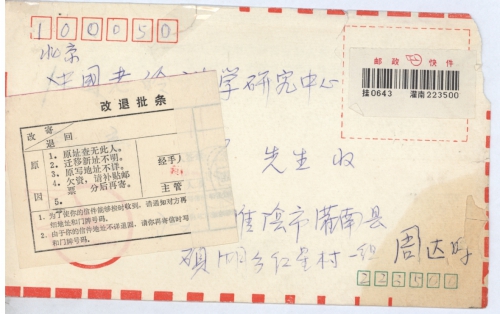 100050
北京
中国 学研究中心
邮政 快件
挂0643 灌南223500
改退批条
改寄
退回
原因
1、原址查无此人。
2、迁移新址不明。
3、原写地址不详。
4、欠资,请补贴邮
票 分后再寄。
5、
经手人
主管
1、为了使你的信件能够相时收到,请通知对方再
细地址和门牌号码。
2、由于你的信件地址不详退回,请你再寄信时写
和门牌号码。
先生 收
淮阴市灌南县
硕湖乡红星村一组 周达
223500